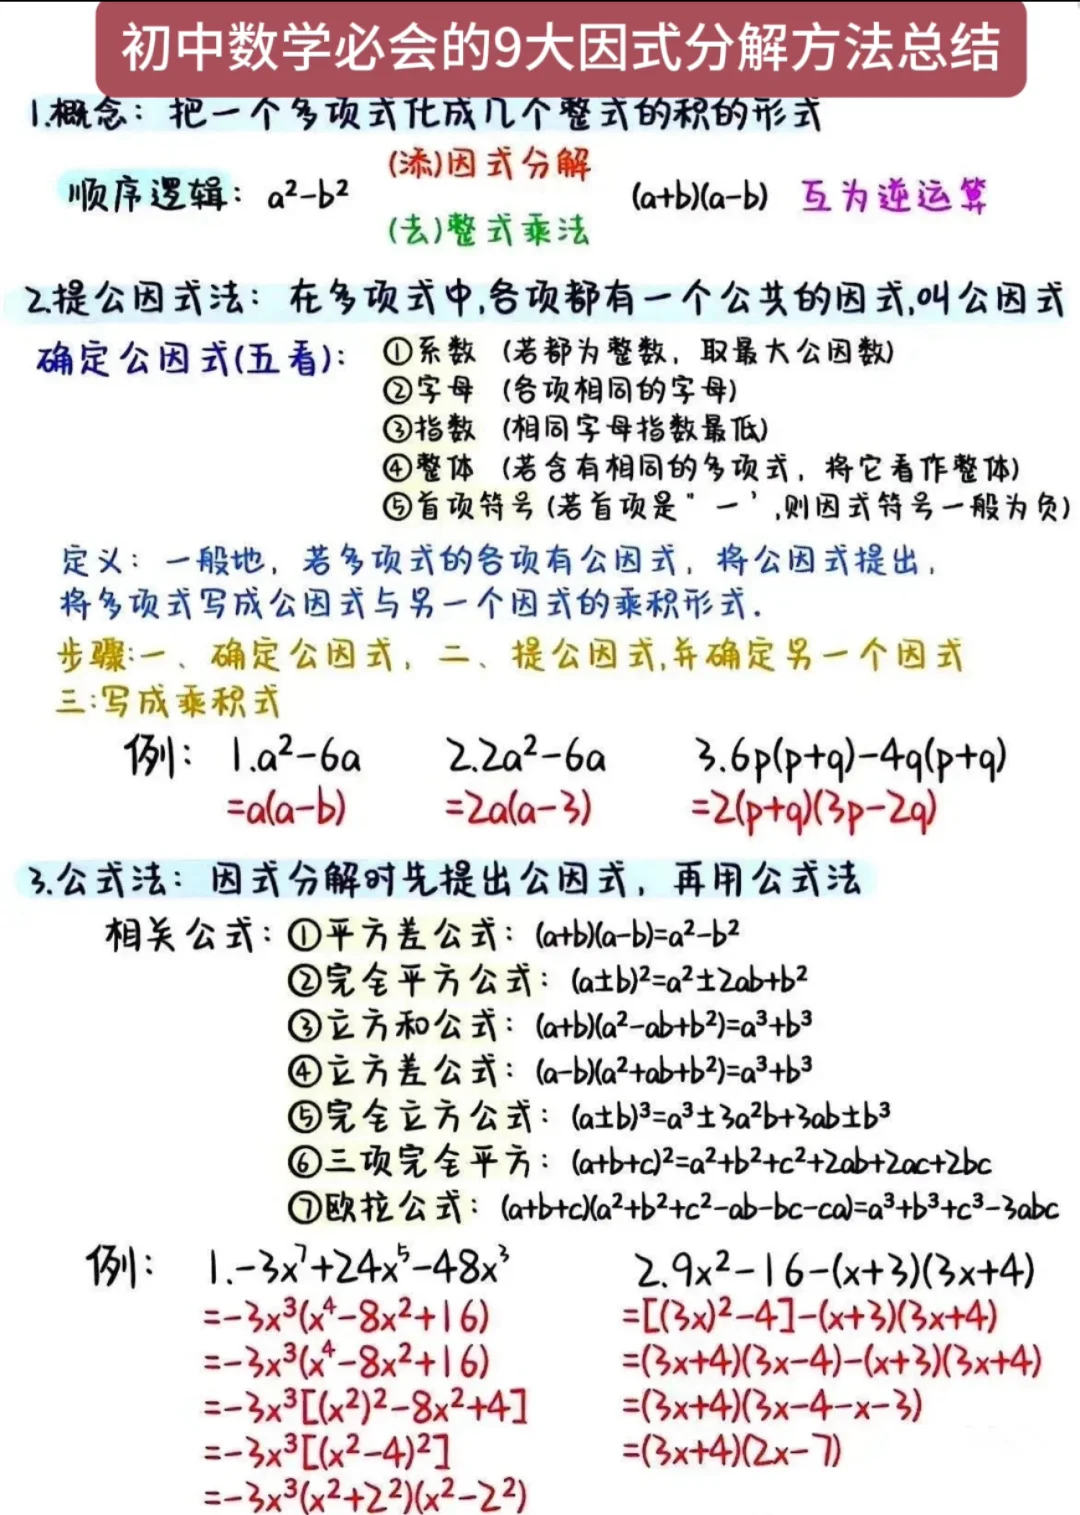 初中数学必会的9大因式分解方法总结
1.概念：把一个多项式化成几个整式的积的形式
(添)因式分解
顺序逻辑：a²-b² (a+b)(a-b) 互为逆运算
(去)整式乘法
2.提公因式法：在多项式中,各项都有一个公共的因式,叫公因式
确定公因式(五看)：①系数 (若都为整数，取最大公因数)
②字母 (各项相同的字母)
③指数 (相同字母指数最低)
④整体 (若含有相同的多项式，将它看作整体)
⑤首项符号(若首项是"一',则因式符号一般为负)
定义：一般地，若多项式的各项有公因式，将公因式提出，
将多项式写成公因式与另一个因式的乘积形式.
步骤:一、确定公因式，二、提公因式,并确定另一个因式
三:写成乘积式
例：1.a²-6a 2.2a²-6a 3.6p(p+q)-4q(p+q)
=a(a-b) =2a(a-3) =2(p+q)(3p-2q)
3.公式法：因式分解时先提出公因式，再用公式法
相关公式：①平方差公式：(a+b)(a-b)=a²-b²
②完全平方公式：(a±b)²=a²±2ab+b²
③立方和公式：(a+b)(a²-ab+b²)=a³+b³
④立方差公式：(a-b)(a²+ab+b²)=a³+b³
⑤完全立方公式：(a±b)³=a³±3a²b+3ab±b³
⑥三项完全平方：(a+b+c)²=a²+b²+c²+2ab+2ac+2bc
⑦欧拉公式：(a+b+c)(a²+b²+c²-ab-bc-ca)=a³+b³+c³-3abc
例：1.-3x⁷+24x⁵-48x³ 2.9x²-16-(x+3)(3x+4)
=-3x³(x⁴-8x²+16) =[(3x)²-4]-(x+3)(3x+4)
=-3x³(x⁴-8x²+16) =(3x+4)(3x-4)-(x+3)(3x+4)
=-3x³[(x²)²-8x²+4] =(3x+4)(3x-4-x-3)
=-3x³[(x²-4)²] =(3x+4)(2x-7)
=-3x³(x²+2²)(x²-2²)